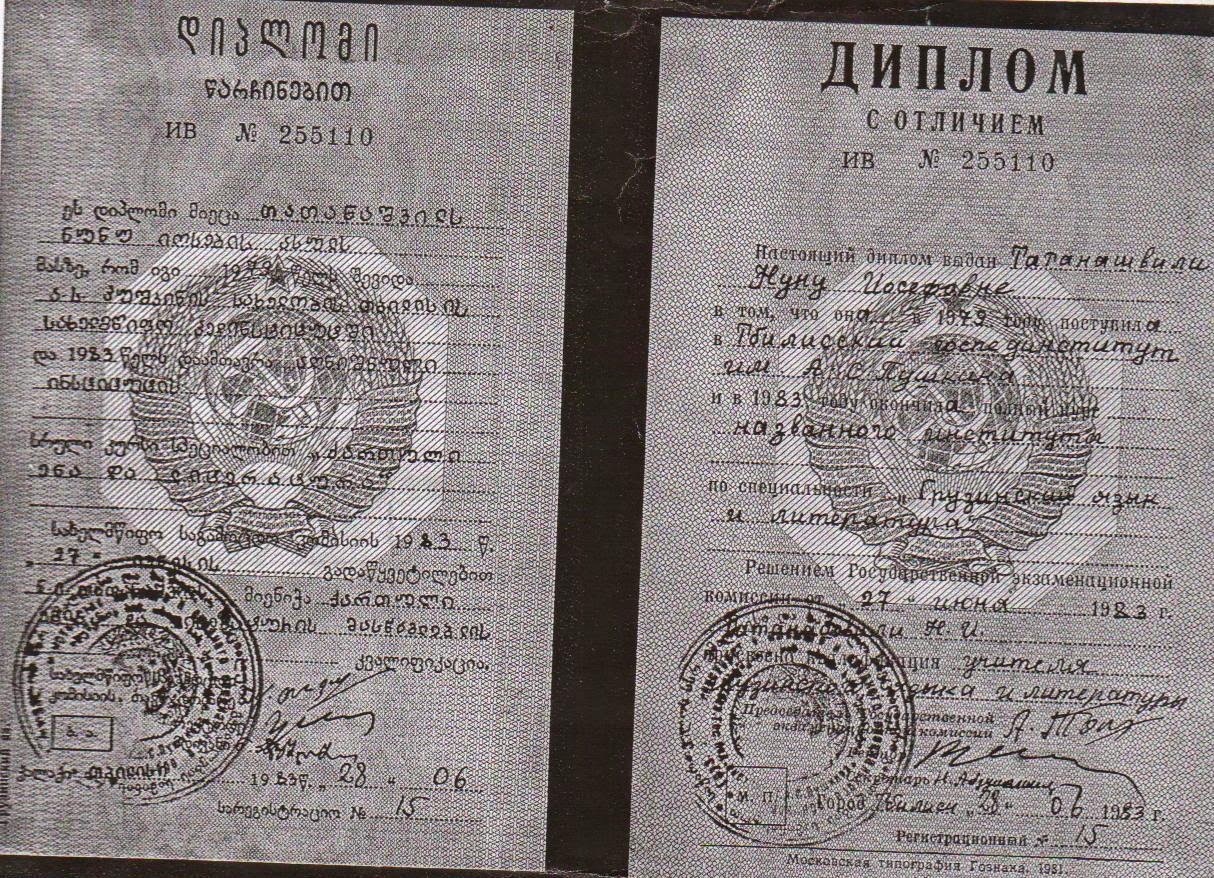 დიპლომი
წარჩინებით
ИВ № 255110
ეს დიპლომი მიეცა თათანაშვილს
ნუნუ იოსების ასულს
მასზე, რომ იგი 1979 წელს შევიდა
ა.ს. პუშკინის სახელობის თბილისის
სახელმწიფო პედინსტიტუტში
და 1983 წელს დაამთავრა აღნიშნული
ინსტიტუტის
სრული კურსი სპეციალობით „ქართული
ენა და ლიტერატურა"
სახელმწიფო საგამოცდო კომისიის 1983 წ.
„27" ივნისის გადაწყვეტილებით
მიენიჭა ქართული
მასწავლებლის
კვალიფიკაცია.
სახელმწიფო
კომისიის
ბ. ა.
ქალაქი თბილისი 1983 წ. „28" 06
სარეგისტრაციო № 15
ДИПЛОМ
С ОТЛИЧИЕМ
ИВ № 255110
Настоящий диплом выдан Татанашвили
Нуну Иосефовне
в том, что она в 1979 году поступила
в Тбилисский госпединститут
им А. С. Пушкина
и в 1983 году окончила полный курс
названного института
по специальности „Грузинский язык
и литература"
Решением Государственной экзаменационной
комиссии от „27" июня 1983 г.
Татанашвили Н. И.
присвоена квалификация учителя
грузинского языка и литературы
Председатель Государственной
экзаменационной комиссии
Секретарь
М. П. Город Тбилиси „28" 06 1983 г.
Регистрационный № 15
Московская типография Гознака. 1981.